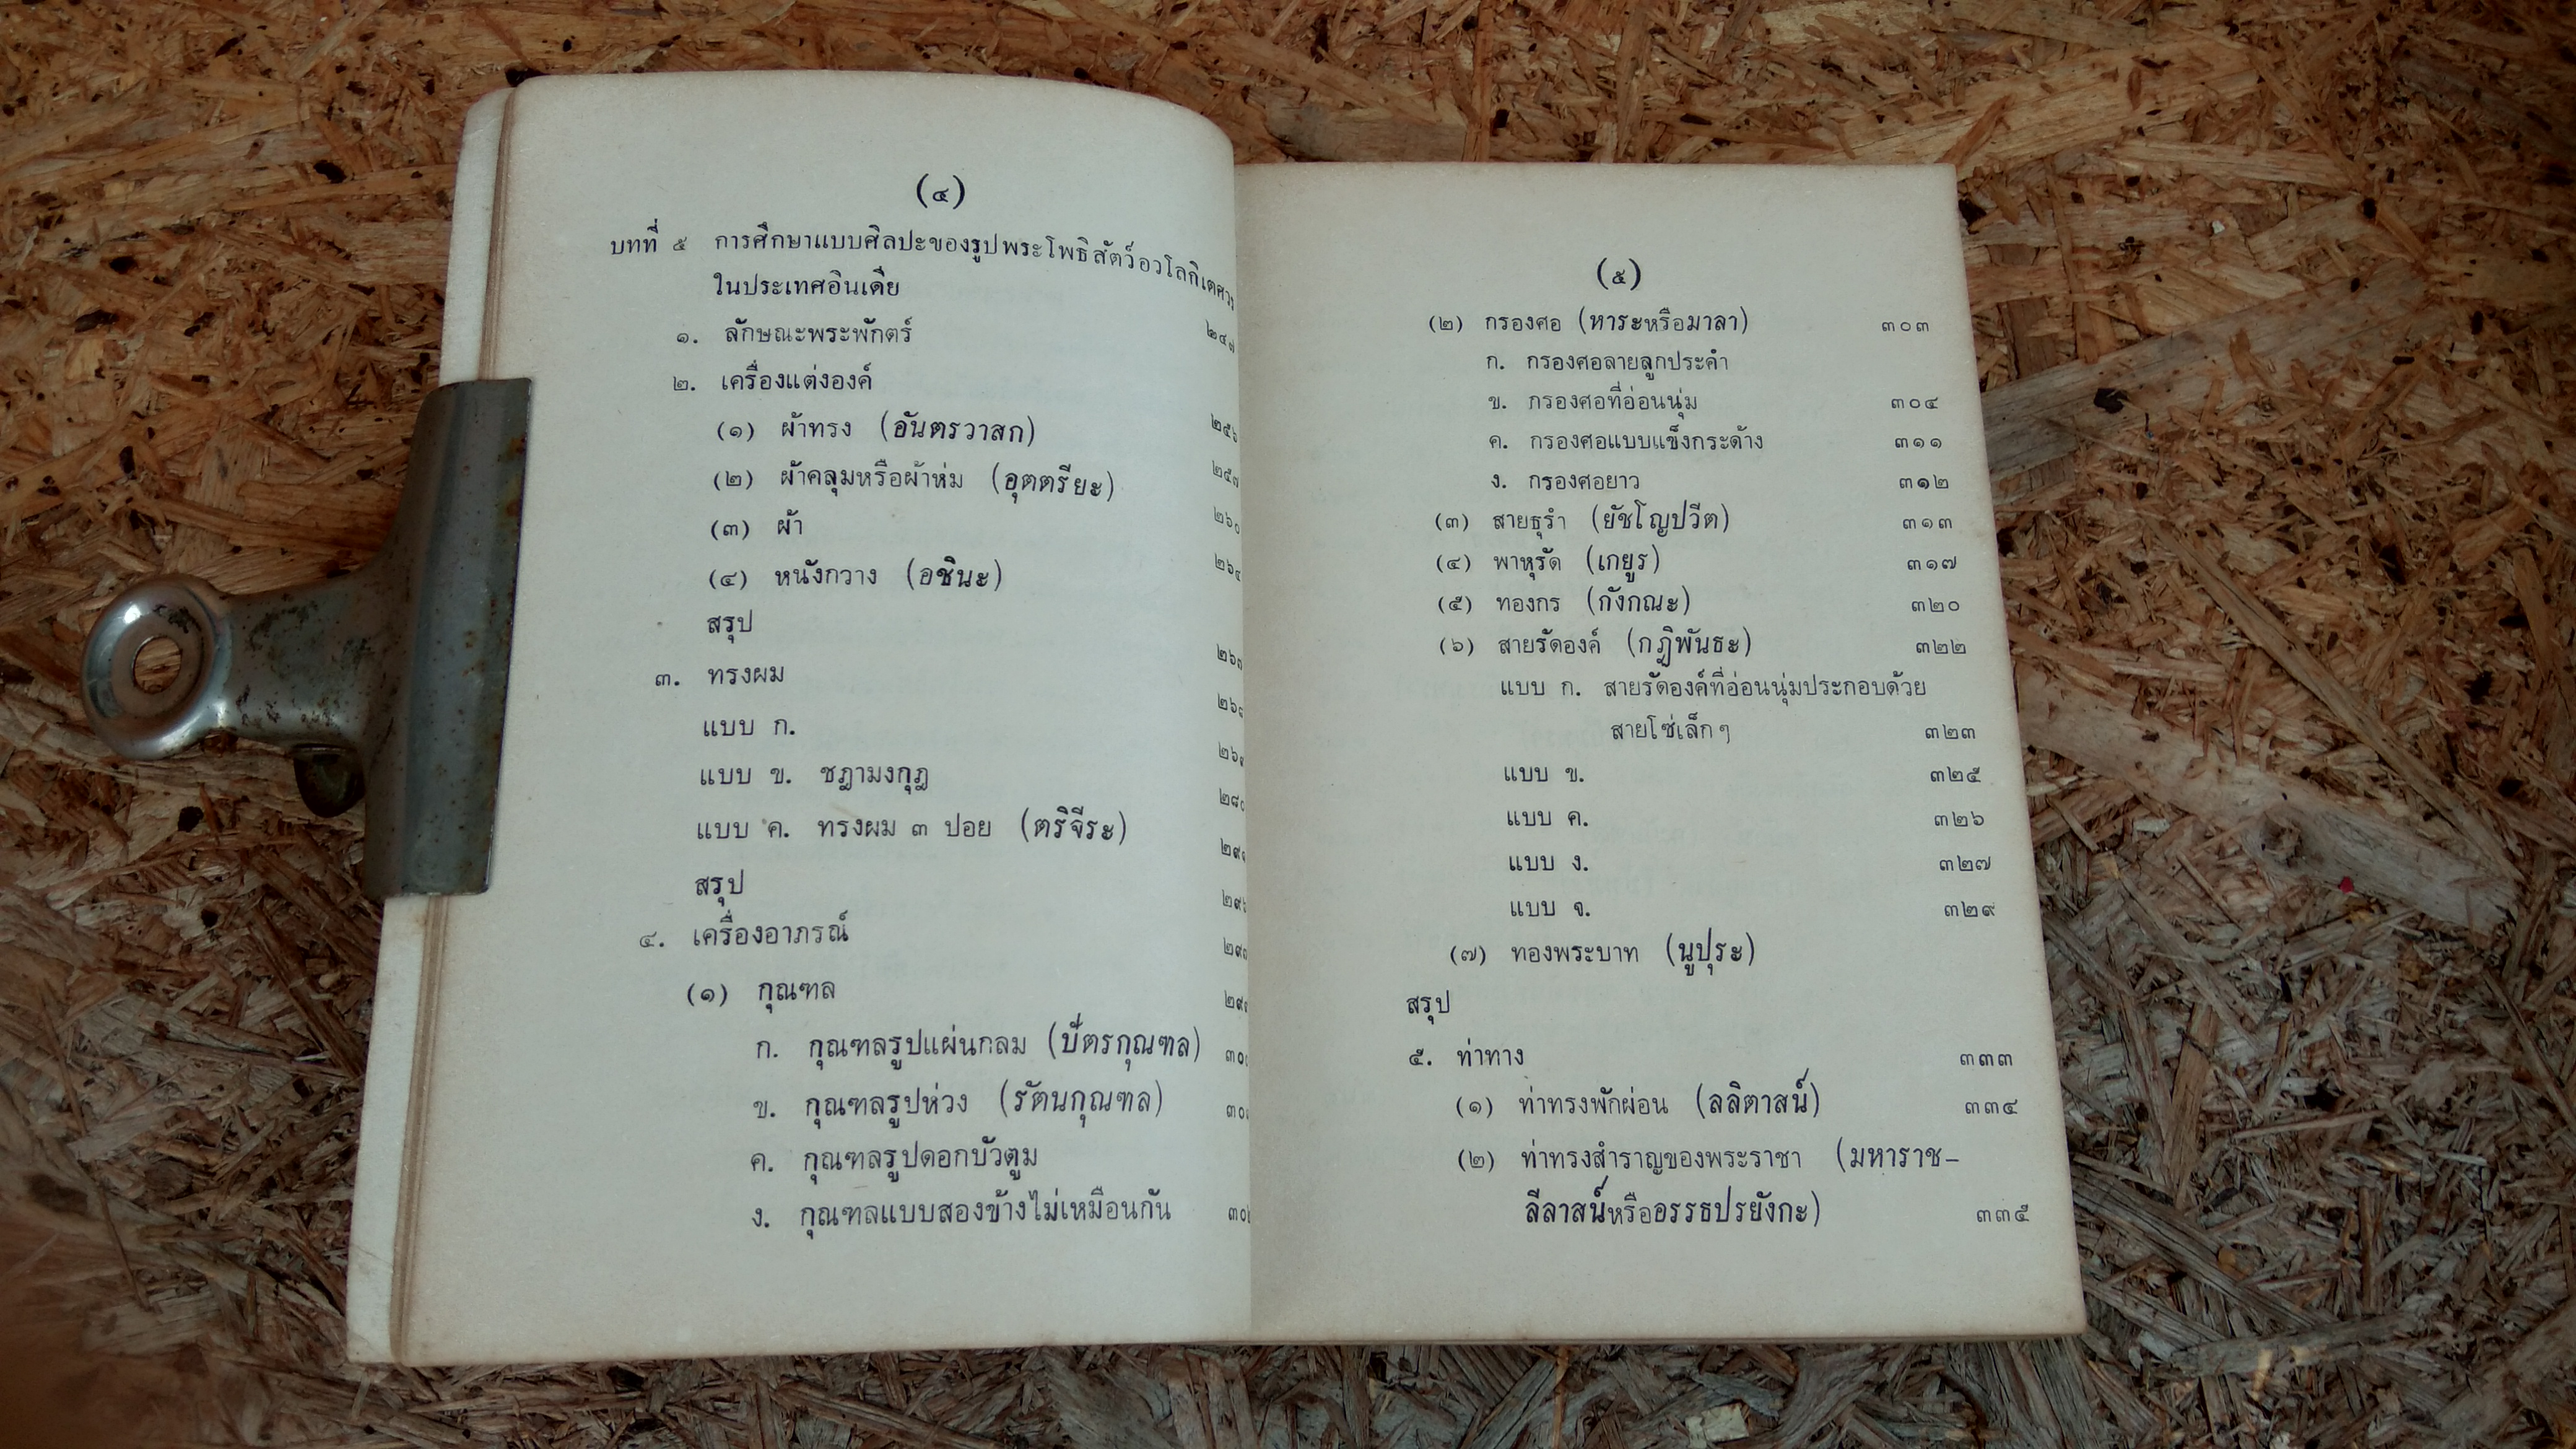 (๔)
บทที่ ๕ การศึกษาแบบศิลปะของรูปพระโพธิสัตว์อวโลกิเตศวร
ในประเทศอินเดีย
๑. ลักษณะพระพักตร์ ๒๔๗
๒. เครื่องแต่งองค์
(๑) ผ้าทรง (อันตรวาสก) ๒๕๖
(๒) ผ้าคลุมหรือผ้าห่ม (อุตตรียะ) ๒๕๗
(๓) ผ้า ๒๖๐
(๔) หนังกวาง (อชินะ) ๒๖๔
สรุป
๓. ทรงผม ๒๖๗
แบบ ก.
แบบ ข. ชฎามงกุฎ ๒๘๐
แบบ ค. ทรงผม ๓ ปอย (ตริจีระ)
สรุป
๔. เครื่องอาภรณ์
(๑) กุณฑล
ก. กุณฑลรูปแผ่นกลม (บัตรกุณฑล)
ข. กุณฑลรูปห่วง (รัตนกุณฑล)
ค. กุณฑลรูปดอกบัวตูม
ง. กุณฑลแบบสองข้างไม่เหมือนกัน
(๕)
(๒) กรองศอ (หาระหรือมาลา) ๓๐๓
ก. กรองศอลายลูกประคำ
ข. กรองศอที่อ่อนนุ่ม ๓๐๔
ค. กรองศอแบบแข็งกระด้าง ๓๑๑
ง. กรองศอยาว ๓๑๒
(๓) สายธุรำ (ยัชโญปวีต) ๓๑๓
(๔) พาหุรัด (เกยูร) ๓๑๗
(๕) ทองกร (กังกณะ) ๓๒๐
(๖) สายรัดองค์ (กฎิพันธะ) ๓๒๒
แบบ ก. สายรัดองค์ที่อ่อนนุ่มประกอบด้วย
สายโซ่เล็กๆ ๓๒๓
แบบ ข. ๓๒๕
แบบ ค. ๓๒๖
แบบ ง. ๓๒๗
แบบ จ. ๓๒๙
(๗) ทองพระบาท (นูปุระ)
สรุป
๕. ท่าทาง ๓๓๓
(๑) ท่าทรงพักผ่อน (ลลิตาสน์) ๓๓๔
(๒) ท่าทรงสำราญของพระราชา (มหาราช-
ลีลาสน์หรืออรรธปรยังกะ) ๓๓๕